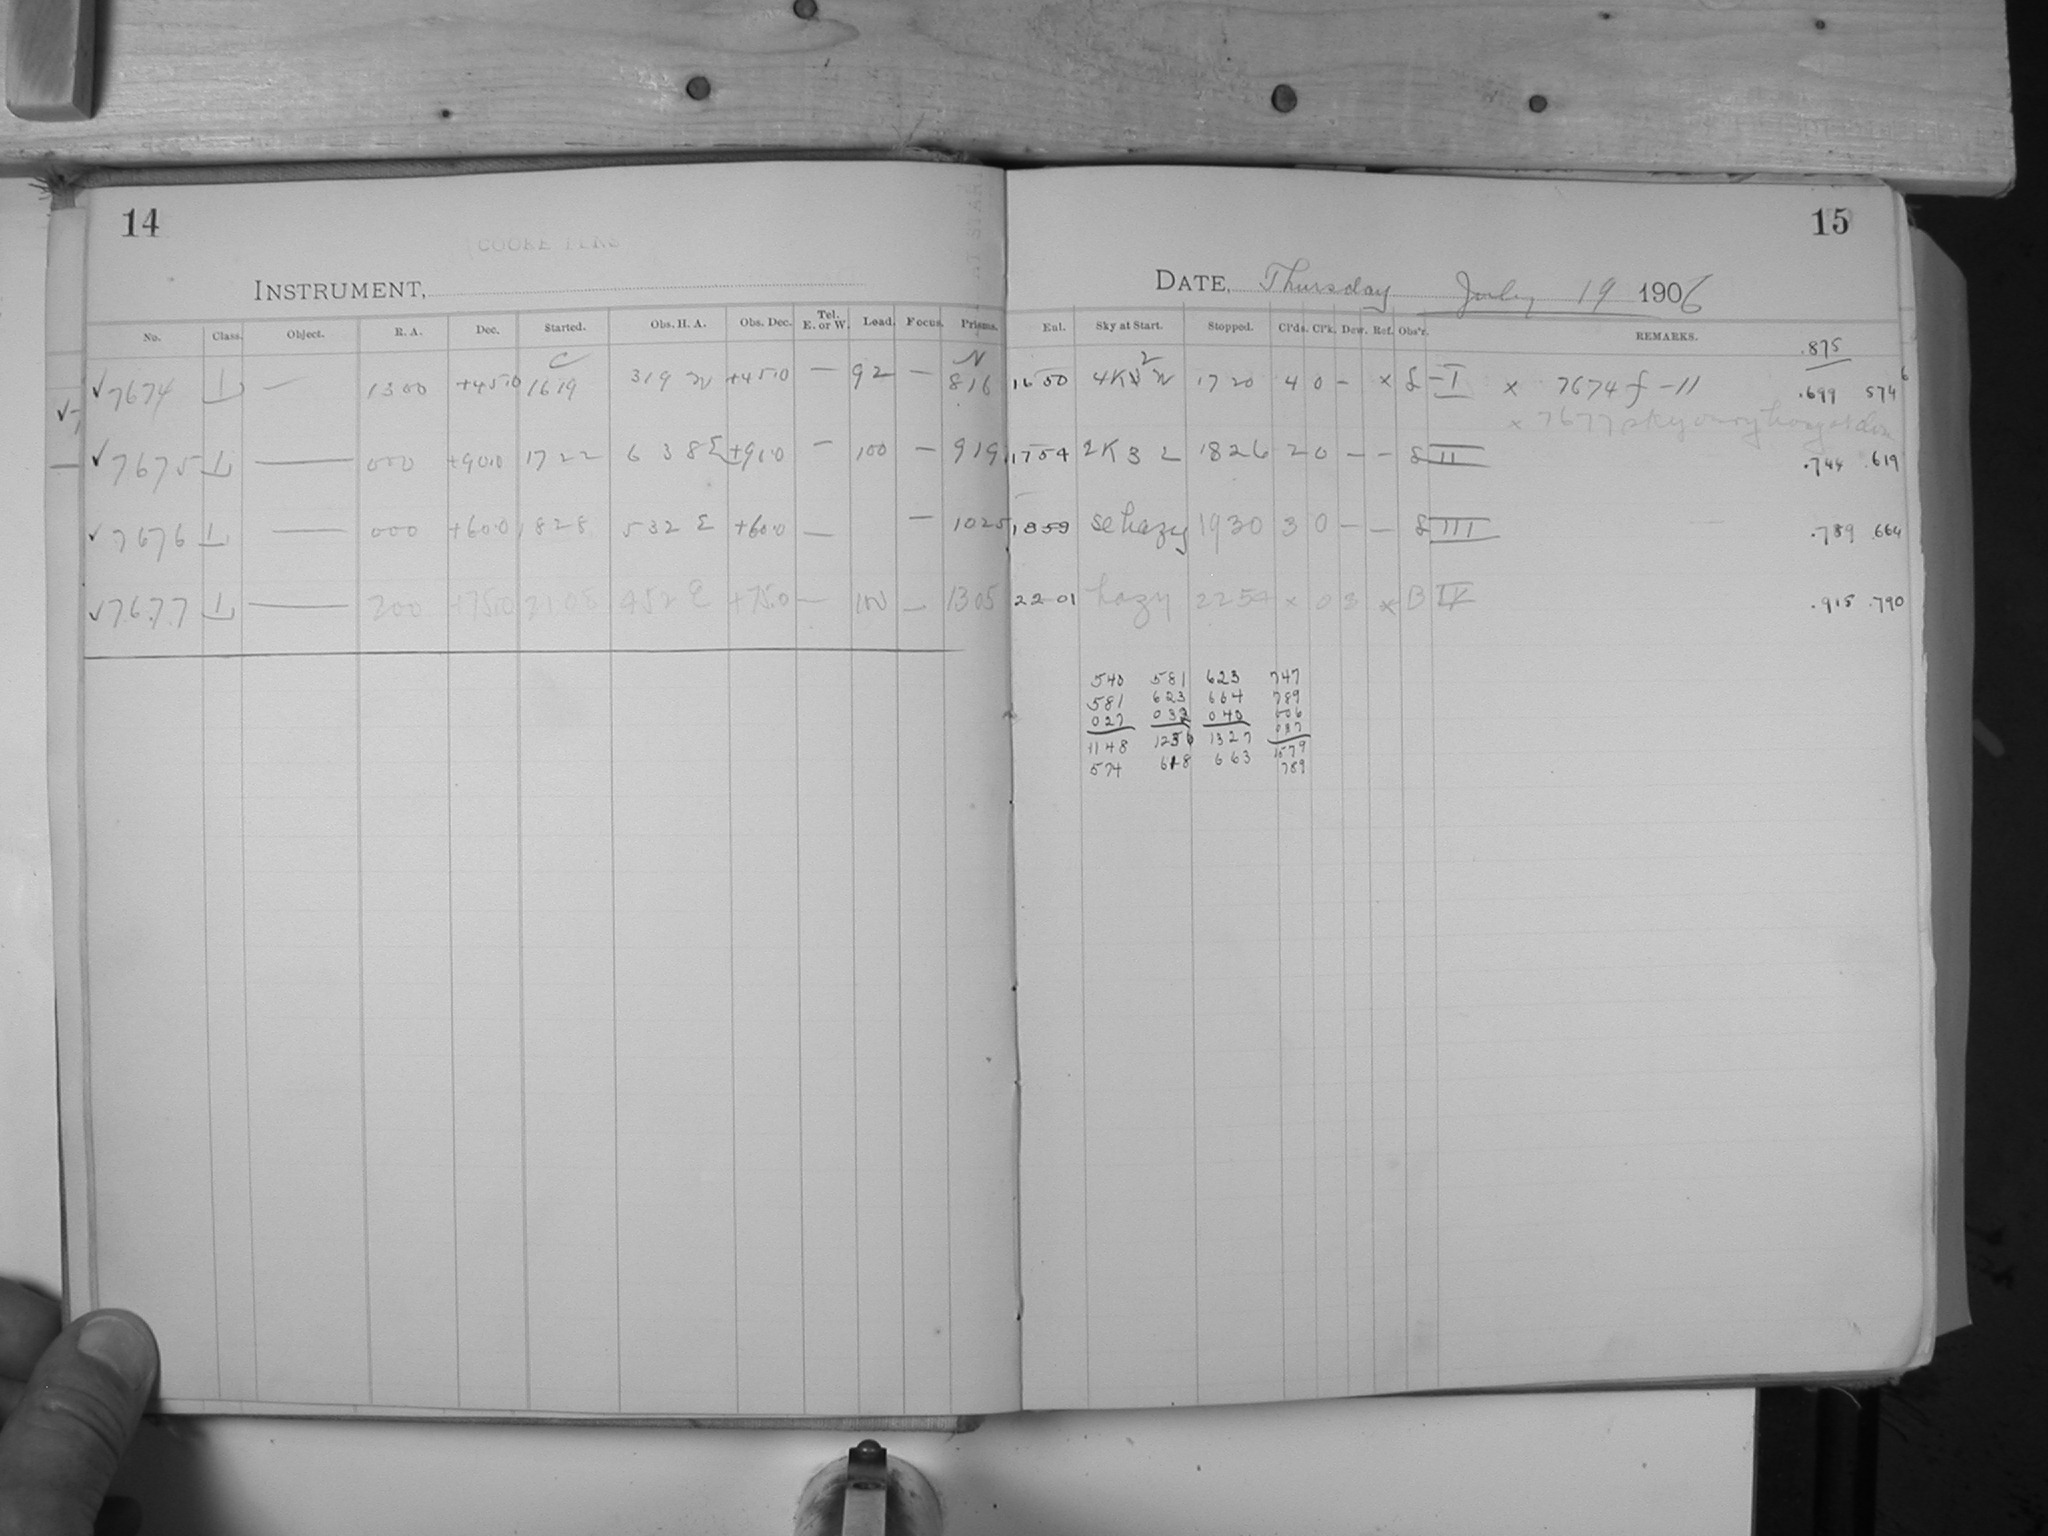 14
COOKE LENS
INSTRUMENT,
No. Class. Object. R. A. Dec. Started. Obs. H. A. Obs. Dec. Tel. E. or W. Load. Focus. Prisms.
C N
✓7674 L — 1300 +45.0 1619 319 W +45.0 — 92 — 816
✓7675 L — 000 +90.0 1722 638 E +91.0 — 100 — 919
✓7676 L — 000 +60.0 1828 532 E +60.0 — — 1025
✓7677 L — 200 +75.0 2108 452 E +75.0 — 100 — 1305
15
DATE, Thursday July 19 1906
Ent. Sky at Start. Stopped. Cl'ds. Cl'k. Dew. Ref. Obs'r. REMARKS.
.875
1650 4K2 W 1720 4 0 — × L I × 7674 f -11 .699 574 6
× 7677 sky very hazy at
1754 2K3 L 1826 2 0 — — L II .744 .619
1859 se hazy 1930 3 0 — — L III .789 .664
2201 hazy 2254 × 0 3 × B IV .915 .790
540 581 623 747
581 623 664 789
027 032 040
1148 1236 1327 1579
574 618 663 789